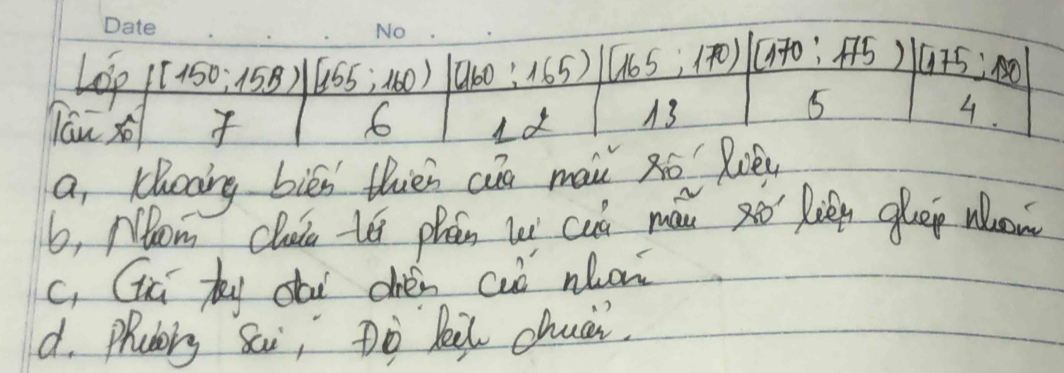 Date . . . No . . .
Lớp | [150; 155) | [155; 160) | [160; 165) | [165; 170) | [170; 175) | [175; 180)
Tần số | 7 | 6 | 12 | 13 | 5 | 4.
a, Khoảng biến thiên của mẫu số liệu
b, Nhóm chứa tứ phân vị của mẫu số liệu ghép nhóm
c, Giá trị đại diện của nhóm
d. Phương sai, Độ lệch chuẩn.